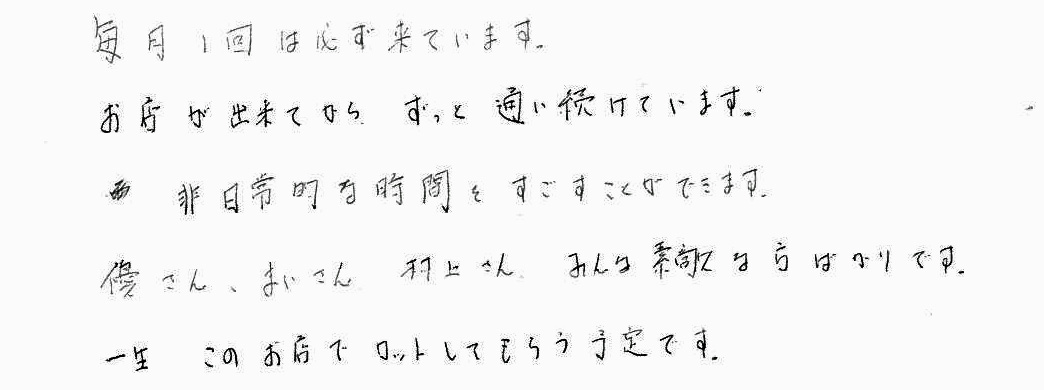 毎月1回は必ず来ています。
お店が出来てから ずっと 通い続けています。
非日常的な時間を すごすことができます。
優さん、まいさん 村上さん みんな素敵な方ばかりです。
一生 このお店でカットしてもらう予定です。